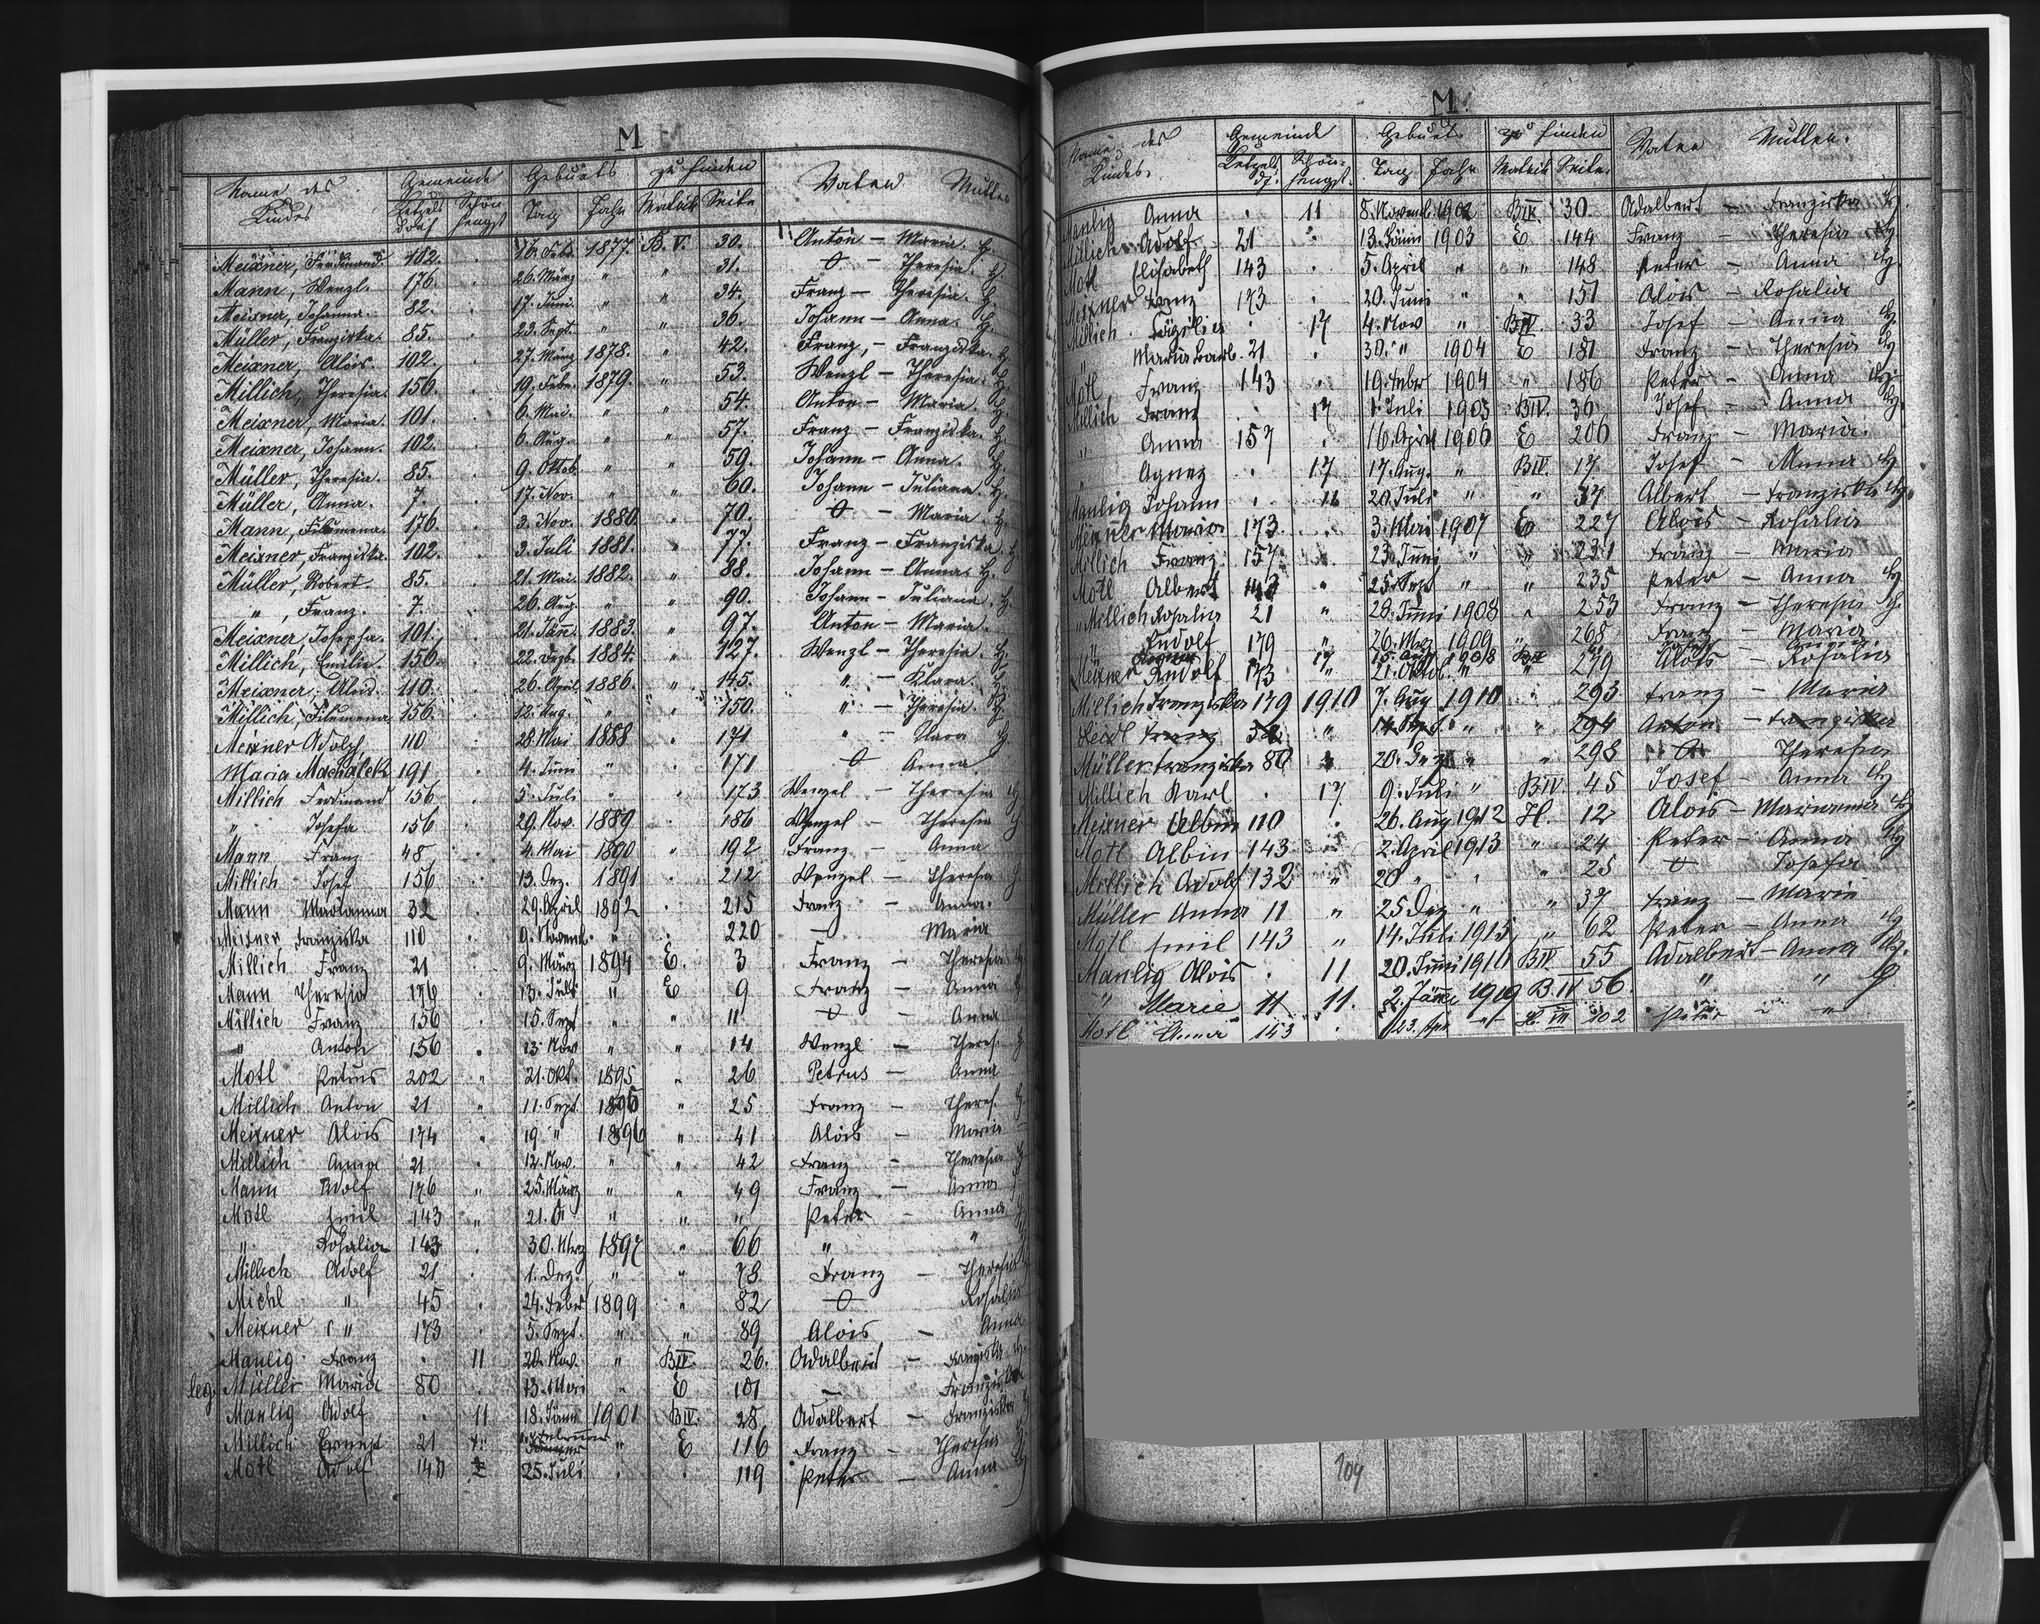 M
Name des Kindes Gemeinde Geburts zu finden Vater Mutter
Letzelsdorf Schönhengst Tag Jahr Matrik Seite
Meixner, Ferdinand. 182. 16. Feb. 1877. B. V. 30. Anton – Maria.
Mann, Wenzl. 176. 26. März " " 31. O – Theresia.
Meixner, Johanna. 82. 17. Juni. " " 34. Franz – Theresia.
Müller, Franziska. 85. 23. Sept. " " 36. Johann – Anna.
Meixner, Alois. 102. 27. März 1878. " 42. Franz, – Franziska.
Millich, Theresia. 156. 19. Feb. 1879. " 53. Wenzl – Theresia.
Meixner, Maria. 101. 6. Mai. " " 54. Anton – Maria.
Meixner, Johann. 102. 6. Aug. " " 57. Franz – Franziska.
Müller, Theresia. 85. 9. Oktob. " " 59. Johann – Anna.
Müller, Anna. 7. 17. Nov. " " 60. Johann – Juliana.
Mann, Filumena. 176. 3. Nov. 1880. " 70. O – Maria.
Meixner, Franziska. 102. 3. Juli 1881. " 77. Franz – Franziska.
Müller, Robert. 85. 21. Mai. 1882. " 88. Johann – Anna.
" , Franz. 7. 26. Aug. " " 90. Johann – Juliana.
Meixner, Josepha. 101. 21. Jän. 1883. " 97. Anton – Maria.
Millich, Emilie. 156. 22. Dezb. 1884. " 127. Wenzl – Theresia.
Meixner, Alois. 110. 26. April 1886. " 145. " – Klara.
Millich, Filumena 156. 12. Aug. " " 150. " – Theresia.
Meixner Adolph, 110 28. Mai 1888 " 171 " – Klara
Maria Machalek 191 4. Juni " 171 O Anna
Millich Ferdinand 156 5. Juli " 173 Wenzel – Theresia
" Josefa 156 29. Nov. 1889 186 Wenzel – Theresia
Mann Franz 48 4. Mai 1890 " 192 Franz – Anna
Millich Josef 156 13. Dez. 1891 212 Wenzel – Theresia
Mann Marianna 32 29. April 1892 215 Franz – Anna.
Meixner Franziska 110 9. Novemb. " 220 – Maria
Millich Franz 21 9. März 1894 E. 3 Franz – Theresia
Mann Theresia 176 13. Juli " E 9 Franz – Anna
Millich Franz 156 15. Sept " " 11 O – Anna
" Anton 156 13. Nov " " 14 Wenzl – Theres.
Motl Petrus 202 " 21. Okt. 1895 " 26 Petrus – Anna
Millich Anton 21 " 11. Sept. 1895 " 25 Franz – Theres.
Meixner Alois 174 " 19 " 1896 " 41 Alois – Maria
Millich Anna 21 12. Nov. " " 42 Franz – Theresia
Mann Adolf 176 " 25. März " " 49 Franz – Anna
Motl Emil 143 " 21. " " " Peter – Anna
" Rosalia 143 30. Mrz 1897 " 66 " "
Millich Adolf 21 1. Dez. " " 78 Franz – Theresia
Michl " 45 24. Feber 1899 " 82 O Rosalia
Meixner " 173 5. Sept. " " 89 Alois – Anna
Manlig Franz . 11 20. Nov. " BIV. 26. Adalbert – Franziska
leg. Müller Maria 80 13. Mai " E 101 – Franziska
Manlig Adolf . 11 18. Jänn 1901 BIV. 28 Adalbert – Franziska
Millich Ernest 21 Februar " E 116 Franz – Theresia
Motl Adolf 143 25. Juli 119 Peter – Anna
M
Name des Kindes. Gemeinde Geburts zu finden Vater Mutter.
Letzelsdf. Schönhengst. Tag Jahr Matrik Seite.
Manlig Anna . 11 8. Novemb. 1902 BIV. 30. Adalbert – Franziska
Millich Adolf 21 13. Jänn 1903 E 144 Franz – Theresia
Motl Elisabeth 143 . 5. April " " 148 Peter – Anna
Meixner Franz 173 20. Juni " " 151 Alois – Rosalia
Millich Cäzilia . 17 4. Nov " BIV. 33 Josef – Anna
Maria Barb. 21 . 30. " 1904 E 181 Franz – Theresia
Motl Franz 143 19. Feber 1904 " 186 Peter – Anna
Millich Franz . 17 1. Juli 1905 BIV. 36 Josef – Anna
" Anna 157 . 16. April 1906 E 206 Franz – Maria.
" Agnes . 17 17. Aug. " BIV. 17 Josef – Anna
Manlig Johann . 11 20. Juli " " 37 Albert – Franziska
Meixner Maria 173 3. Mai 1907 E 227 Alois – Rosalia
Millich Franz 157 23. Juni " " 231 Franz – Maria
Motl Albert 143 " 25. Sept " " 235 Peter – Anna
" Millich Rosalia 21 " 28. Juni 1908 " 253 Franz – Theresia
" Rudolf 179 " 26. Mrz 1909 " 268 Franz – Maria
Meixner Rudolf 173 " 21. Oktob. " " 279 Alois – Rosalia
Millich Franziska 179 1910 7. Aug 1910 " 293 Franz – Maria
" " " 294 Anton – Franziska
Müller Franziska 80 20. Dez " " 298 Theresia
Millich Karl . 17 9. Juli " BIV 45 Josef – Anna
Meixner Albin 110 26. Aug 1912 H. 12 Alois – Marianna
Motl Albin 143 2. April 1913 " 24 Peter – Anna
Millich Adolf 132 " 20 " " " 25 O Josefa
Müller Anna 11 " 25 Dez " " 37 Franz – Marie
Motl Emil 143 " 14. Juli 1915 " 62 Peter – Anna
Manlig Alois . 11 20. Juni 1911 BIV 55 Adalbert – Anna
" Marie 11 11. 2. Jänn 1919 B. IV 56 " "
Motl Anna 143 23. 102 Peter "
109